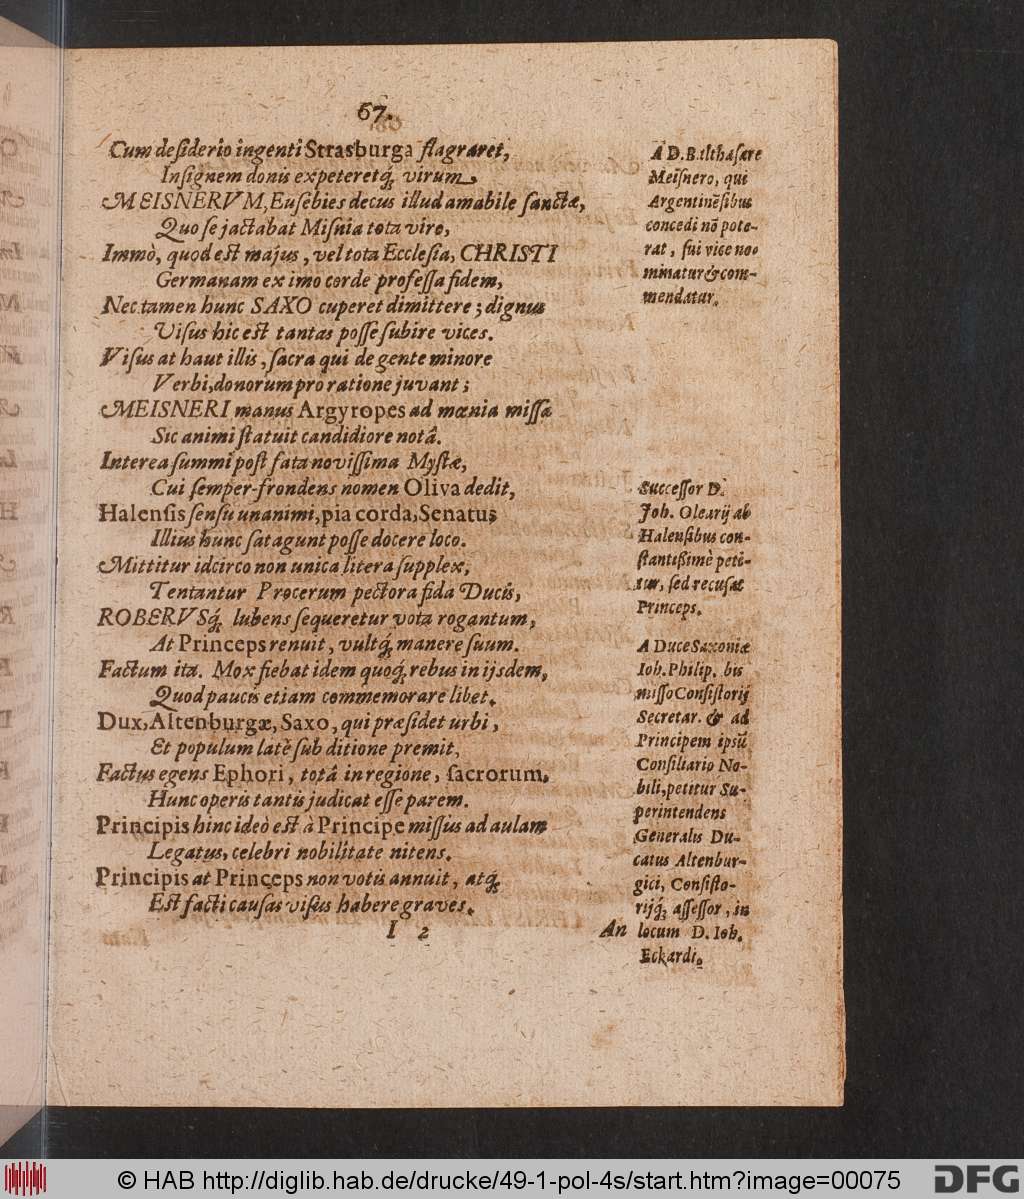 67.
Cum deſiderio ingenti Strasburga flagraret,
Inſignem donis expeteretq́; virum
MEISNERVM, Euſebies decus illud amabile ſanctæ,
Quo ſe jactabat Miſnia tota viro,
Immò, quod eſt majus, vel tota Eccleſia, CHRISTI
Germanam ex imo corde profeſſa fidem,
Nec tamen hunc SAXO cuperet dimittere; dignus
Viſus hic eſt tantas poſſe ſubire vices.
Viſus at haut illis, ſacra qui de gente minore
Verbi, donorum pro ratione juvant;
MEISNERI manus Argyropes ad mœnia miſſa
Sic animi ſtatuit candidiore notâ.
Interea ſummi poſt fata noviſſima Myſtæ,
Cui ſemper-frondens nomen Oliva dedit,
Halenſis ſenſu unanimi, pia corda, Senatus
Illius hunc ſatagunt poſſe docere loco.
Mittitur idcirco non unica litera ſupplex,
Tentantur Procerum pectora fida Ducis,
ROBERVSq́; lubens ſequeretur vota rogantum,
At Princeps renuit, vultq́; manere ſuum.
Factum ita. Mox fiebat idem quoq́; rebus in ijsdem,
Quod paucis etiam commemorare libet.
Dux, Altenburgæ, Saxo, qui præſidet urbi,
Et populum latè ſub ditione premit,
Factus egens Ephori, totâ in regione, ſacrorum,
Hunc operis tantis judicat eſſe parem.
Principis hinc ideò eſt à Principe miſſus ad aulam
Legatus, celebri nobilitate nitens.
Principis at Princeps non votis annuit, atq́;
Eſt facti cauſas viſus habere graves.
I 2
An
A D. Balthaſare
Meiſnero, qui
Argentinẽſibus
concedi nõ pote-
rat, ſui vice no-
minatur & com-
mendatur.
Succeſſor D.
Joh. Olearij ab
Halenſibus con-
ſtantißimè peti-
tur, ſed recuſat
Princeps.
A Duce Saxoniæ
Ioh. Philip. bis
miſſo Conſiſtorij
Secretar. & ad
Principem ipsũ
Conſiliario No-
bili, petitur Su-
perintendens
Generalis Du-
catus Altenbur-
gici, Conſiſto-
rijq́; aſſeſſor, in
locum D. Ioh.
Eckardi.
© HAB http://diglib.hab.de/drucke/49-1-pol-4s/start.htm?image=00075
DFG